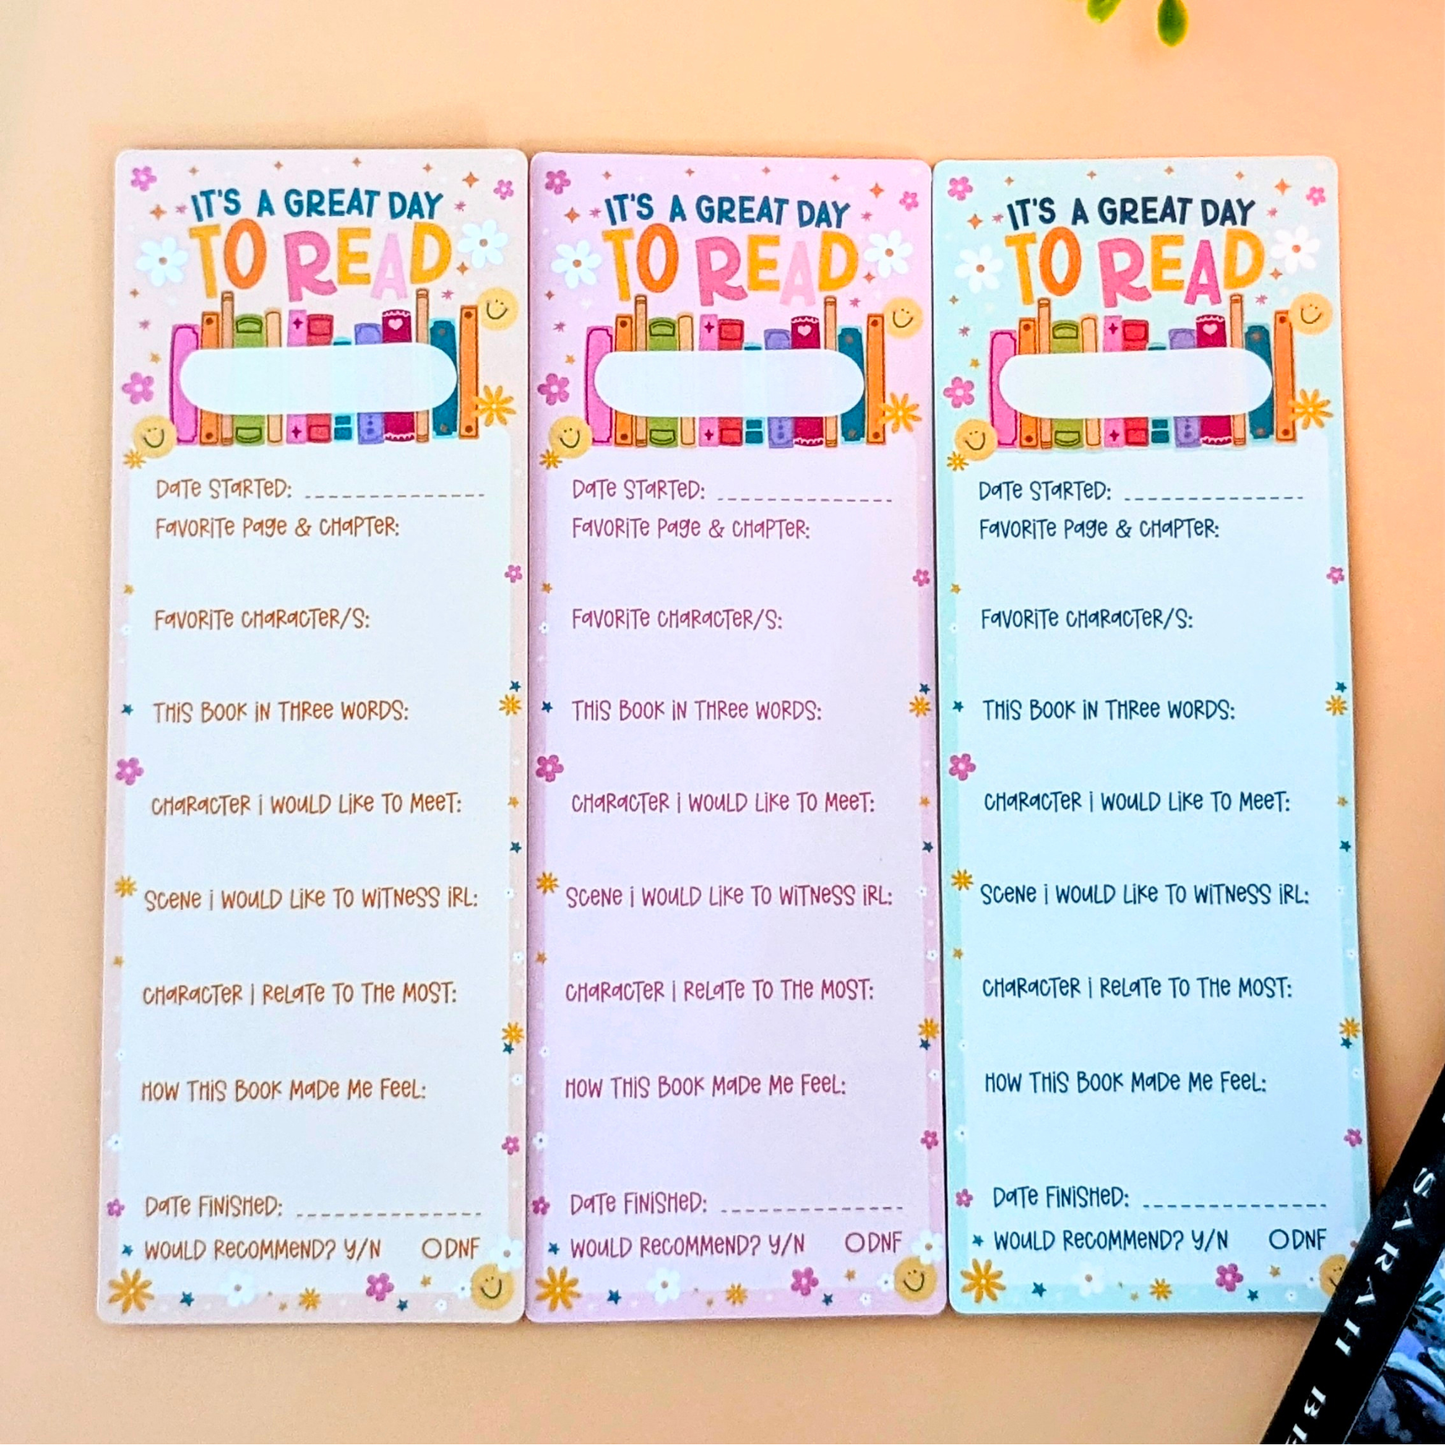 IT'S A GREAT DAY
TO READ
DATE STARTED: _ _ _ _ _ _ _ _ _ _ _ _ _
FAVORITE PAGE & CHAPTER:
FAVORITE CHARACTER/S:
THIS BOOK IN THREE WORDS:
CHARACTER I WOULD LIKE TO MEET:
SCENE I WOULD LIKE TO WITNESS IRL:
CHARACTER I RELATE TO THE MOST:
HOW THIS BOOK MADE ME FEEL:
DATE FINISHED: _ _ _ _ _ _ _ _ _ _ _ _ _
WOULD RECOMMEND? Y/N ODNF
IT'S A GREAT DAY
TO READ
DATE STARTED: _ _ _ _ _ _ _ _ _ _ _ _ _
FAVORITE PAGE & CHAPTER:
FAVORITE CHARACTER/S:
THIS BOOK IN THREE WORDS:
CHARACTER I WOULD LIKE TO MEET:
SCENE I WOULD LIKE TO WITNESS IRL:
CHARACTER I RELATE TO THE MOST:
HOW THIS BOOK MADE ME FEEL:
DATE FINISHED: _ _ _ _ _ _ _ _ _ _ _ _ _
WOULD RECOMMEND? Y/N ODNF
IT'S A GREAT DAY
TO READ
DATE STARTED: _ _ _ _ _ _ _ _ _ _ _ _ _
FAVORITE PAGE & CHAPTER:
FAVORITE CHARACTER/S:
THIS BOOK IN THREE WORDS:
CHARACTER I WOULD LIKE TO MEET:
SCENE I WOULD LIKE TO WITNESS IRL:
CHARACTER I RELATE TO THE MOST:
HOW THIS BOOK MADE ME FEEL:
DATE FINISHED: _ _ _ _ _ _ _ _ _ _ _ _ _
WOULD RECOMMEND? Y/N ODNF
SARAH